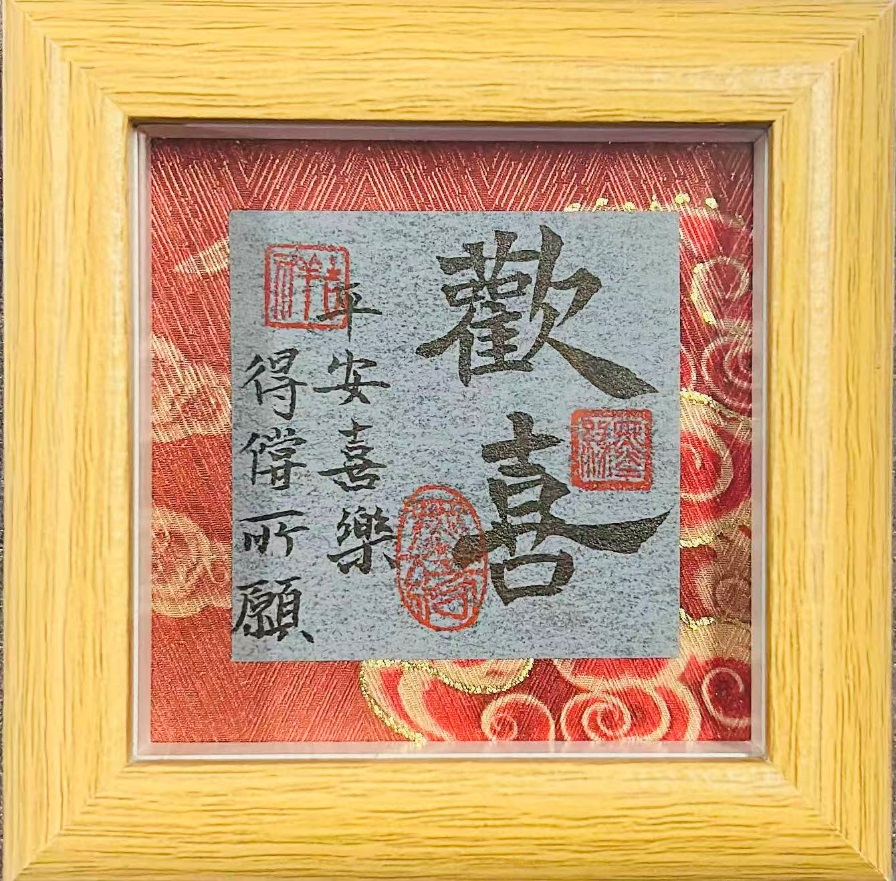 歡喜
平安喜樂
得償所願
吉祥